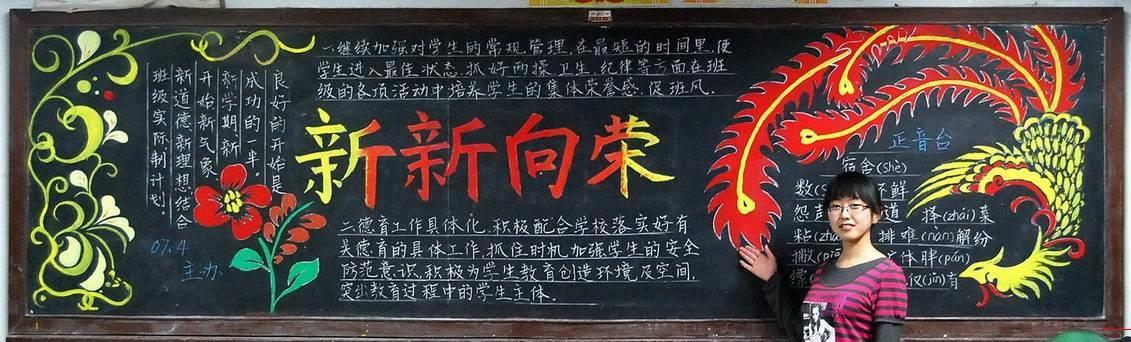 良好的开始是
成功的一半。
新学期新
开始新气象
新道德新理想结合
班级实际制计划.
07.4
主办
一.继续加强对学生的常规管理.在最短的时间里.使
学生进入最佳状态.抓好两操.卫生.纪律等方面.在班
级的各项活动中培养学生的集体荣誉感.促班风.
新新向荣
二.德育工作具体化.积极配合学校落实好有
关德育的具体工作.抓住时机.加强学生的安全
防范意识.积极为学生教育创造环境及空间.
突出教育过程中的学生主体.
正音台
宿舍(shè)
数 不鲜
怨声 道 择(zhái)菜
粘 排难(nàn)解纷
撇 体胖(pán)